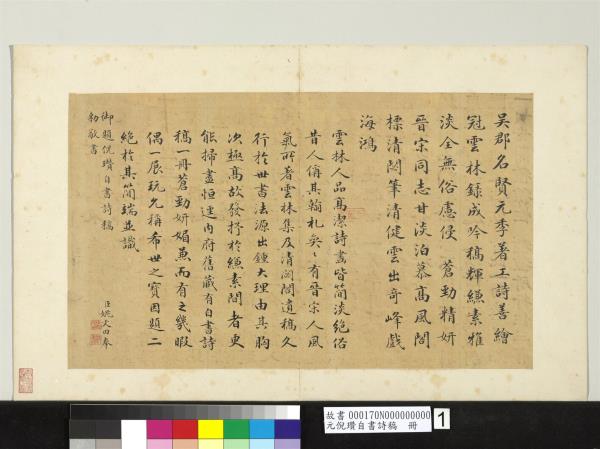 吳郡名賢元季著工詩善繪
冠雲林錄成吟稿輝縑素雅
淡全無俗慮侵 蒼勁精妍
晉宋同志甘淡泊慕高風閣
標清閟筆清健雲出奇峰戲
海鴻
雲林人品高潔詩畫皆簡淡絕俗
昔人稱其翰札奕〻有晉宋人風
氣所著雲林集及清閟閣遺稿久
行於世書法源出鍾大理由其胸
次極高故發抒於縑素間者更
能掃盡恒逕內府舊藏有自書詩
稿一冊蒼勁妍媚兼而有之幾暇
偶一展玩允稱希世之寶因題二
絕於其簡端並識
御題倪瓚自書詩稿 臣姚文田奉
勅敬書
故書 000170N000000000
元倪瓚自書詩稿 冊
1